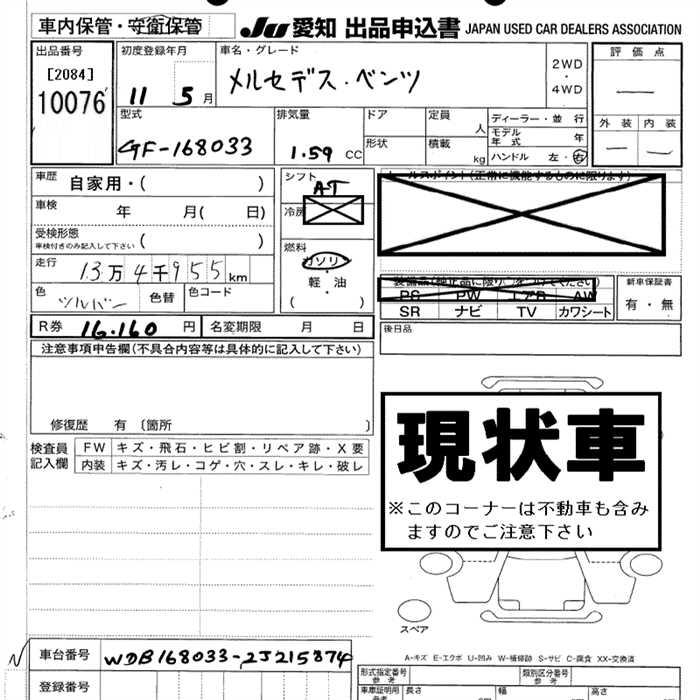 車内保管・守衛保管 JU 愛知 出品申込書 JAPAN USED CAR DEALERS ASSOCIATION
出品番号 初度登録年月 車名・グレード 評価点
[2084] メルセデス・ベンツ 2WD
・
10076 11 5月 4WD
型式 排気量 ドア 定員 人 ディーラー・並行 外装 内装
モデル年式 年
GF-168033 1.59 CC 形状 積載 kg ハンドル 左・右
車歴 自家用・( ) シフト AT
車検 年 月( 日) 冷房
受検形態
車検付きのみ記入して下さい ( ) 燃料
走行 13万4千955km ガソリン
・
軽・油
色 シルバー 色替 色コード ( )
装備品(純正品に限り てください) 新車保証書
PS PW エアB AW 有・無
SR ナビ TV カワシート
R券 16.160 円 名変期限 月 日 後日品
注意事項申告欄(不具合内容等は具体的に記入して下さい)
修復歴 有 〔箇所 〕
検査員記入欄 FW キズ・飛石・ヒビ割・リペア跡・X要
内装 キズ・汚レ・コゲ・穴・スレ・キレ・破レ
現状車
※このコーナーは不動車も含み
ますのでご注意下さい
スペア
A-キズ E-エクボ U-凹み W-補修跡 S-サビ C-腐食 XX-交換済
車台番号 WDB168033-2J215874
登録番号
型式指定番号 参考 類別区分番号 参考
車庫証明用 長さ 幅 高さ